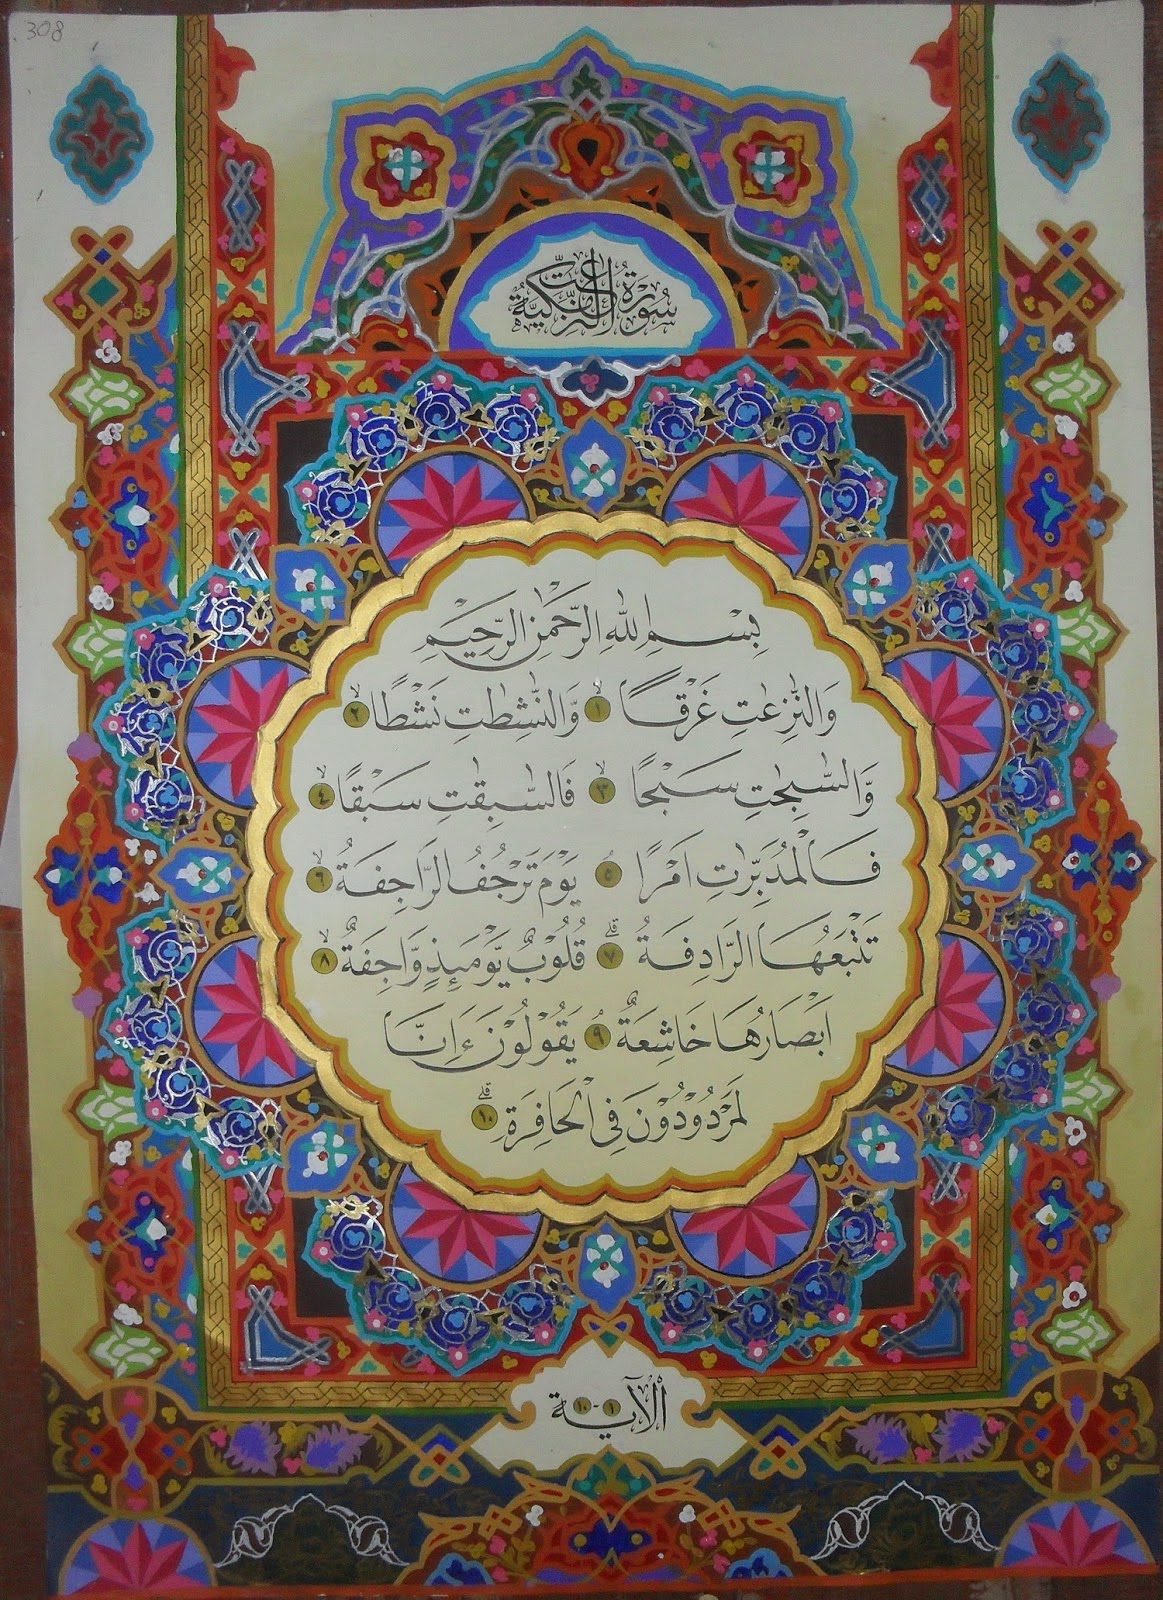 308
سُورَةُ النَّازِعَاتِ مَكِّيَّةٌ
بِسْمِ اللهِ الرَّحْمٰنِ الرَّحِيْمِ
وَالنّٰزِعٰتِ غَرْقًا ١ وَّالنّٰشِطٰتِ نَشْطًا ٢
وَّالسّٰبِحٰتِ سَبْحًا ٣ فَالسّٰبِقٰتِ سَبْقًا ٤
فَالْمُدَبِّرٰتِ اَمْرًا ٥ يَوْمَ تَرْجُفُ الرَّاجِفَةُ ٦
تَتْبَعُهَا الرَّادِفَةُ ٧ قُلُوْبٌ يَّوْمَئِذٍ وَّاجِفَةٌ ٨
اَبْصَارُهَا خَاشِعَةٌ ٩ يَقُوْلُوْنَ ءَاِنَّا
لَمَرْدُوْدُوْنَ فِى الْحَافِرَةِ ١٠
الْآيـة ١-١٠